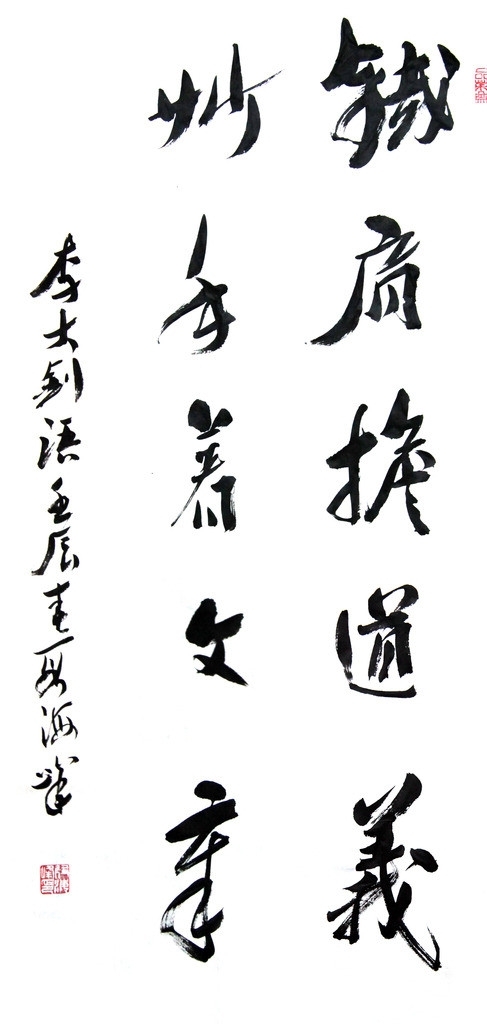 鐵肩擔道義
妙手著文章
李大釗語壬辰春海峰